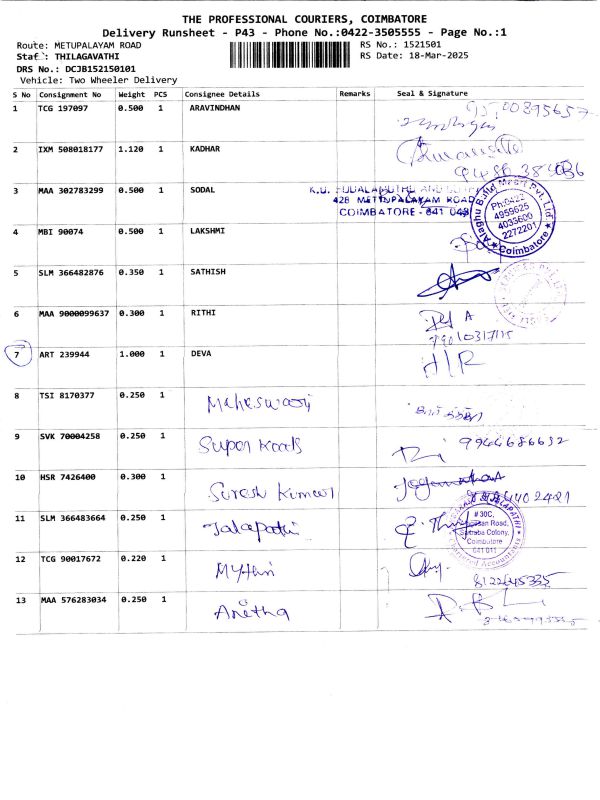 THE PROFESSIONAL COURIERS, COIMBATORE
Delivery Runsheet - P43 - Phone No.:0422-3505555 - Page No.:1
Route: METUPALAYAM ROAD RS No.: 1521501
Staff: THILAGAVATHI RS Date: 18-Mar-2025
DRS No.: DCJB152150101
Vehicle: Two Wheeler Delivery
S No Consignment No Weight PCS Consignee Details Remarks Seal & Signature
1 TCG 197097 0.500 1 ARAVINDHAN
2 IXM 508018177 1.120 1 KADHAR
3 MAA 302783299 0.500 1 SODAL
428 METTUPALAYAM ROAD
COIMBATORE - 641 043
Alaghu Build Mart Pvt. Ltd.
Ph:0422
4959625
4035600
2272201
Coimbatore
4 MBI 90074 0.500 1 LAKSHMI
5 SLM 366482876 0.350 1 SATHISH
6 MAA 9000099637 0.300 1 RITHI
7 ART 239944 1.000 1 DEVA H/R
8 TSI 8170377 0.250 1 Maheswari
9 SVK 70004258 0.250 1 Super 9944686632
10 HSR 7426400 0.300 1 Suresh Kumar
11 SLM 366483664 0.250 1 Jalapathi
# 30C,
Road,
Colony,
Coimbatore
641 011
Chartered Accountants
12 TCG 90017672 0.220 1 Mythri
13 MAA 576283034 0.250 1 Anitha